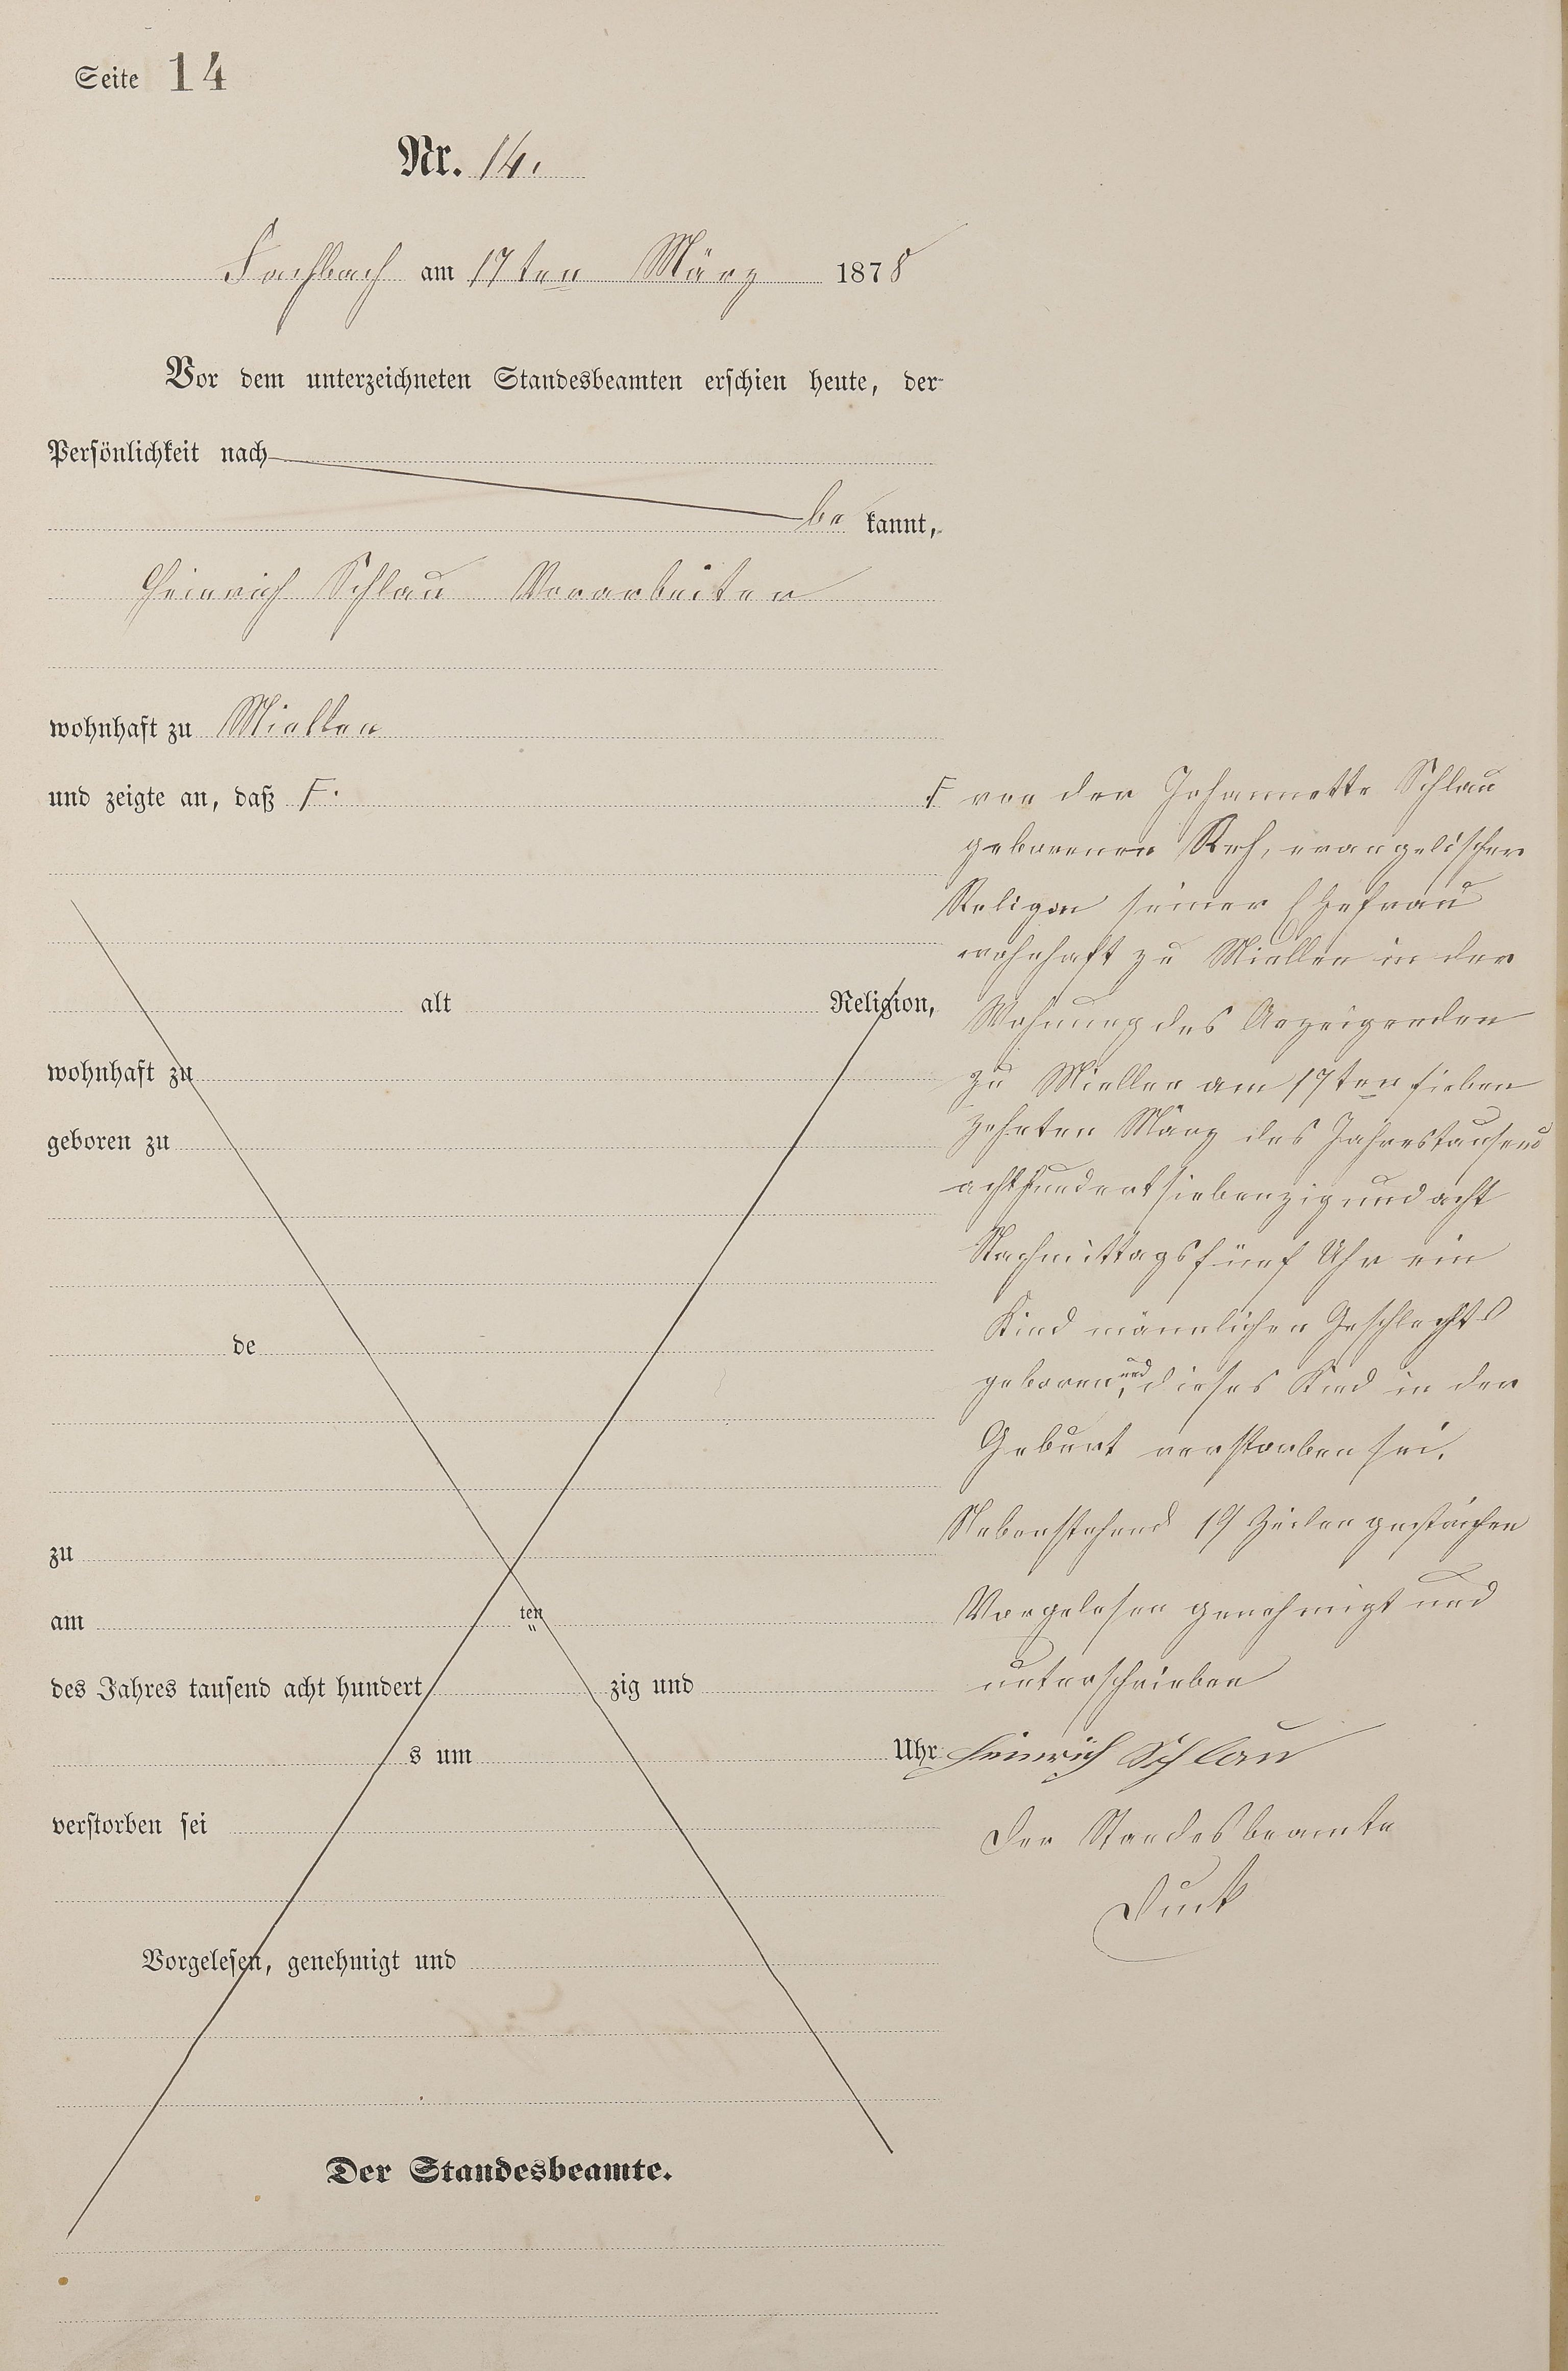 Seite 14
Nr. 14.
Fachbach am 17ten März 1878
Vor dem unterzeichneten Standesbeamten erschien heute, der
Persönlichkeit nach
be kannt,
Heinrich Schlau Vorarbeiter
wohnhaft zu Miellen
und zeigte an, daß F.
alt Religion,
wohnhaft zu
geboren zu
de
zu
am ten
des Jahres tausend acht hundert zig und
s um Uhr
verstorben sei
Vorgelesen, genehmigt und
Der Standesbeamte.
F von der Johannette Schlau
geborenen Reh, evangelischer
Religion seiner Ehefrau
wohnhaft zu Miellen in der
Wohnung des Anzeigenden
zu Miellen am 17ten sieben
zehnten März des Jahrestausend
achthundertsiebenzig und acht
Nachmittags fünf Uhr ein
Kind männlichen Geschlechts
geboren, und dieses Kind in der
Geburt verstorben sei.
Nebenstehend 19 Zeilen gestrichen
Vorgelesen genehmigt und
unterschrieben
Heinrich Schlau
Der Standesbeamte